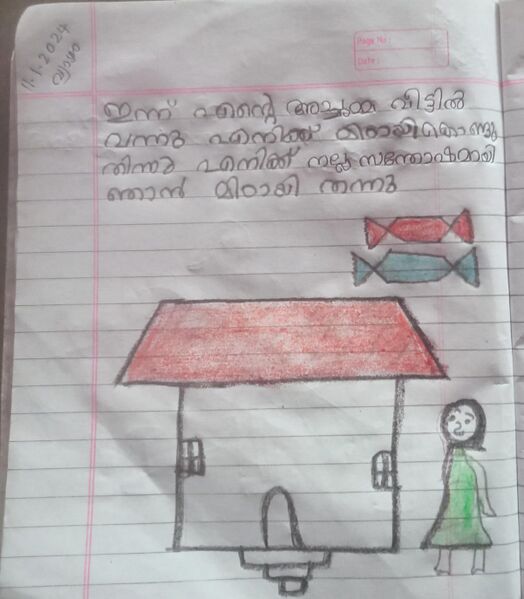 11.1.2024
വ്യാഴം
Page No:
Date:
ഇന്ന് എൻ്റെ അച്ചമ്മ വീട്ടിൽ
വന്നു എനിക്ക് മിഠായികൊണ്ടു
തിന്നു എനിക്ക് നല്ല സന്തോഷമായി
ഞാൻ മിഠായി തന്നു